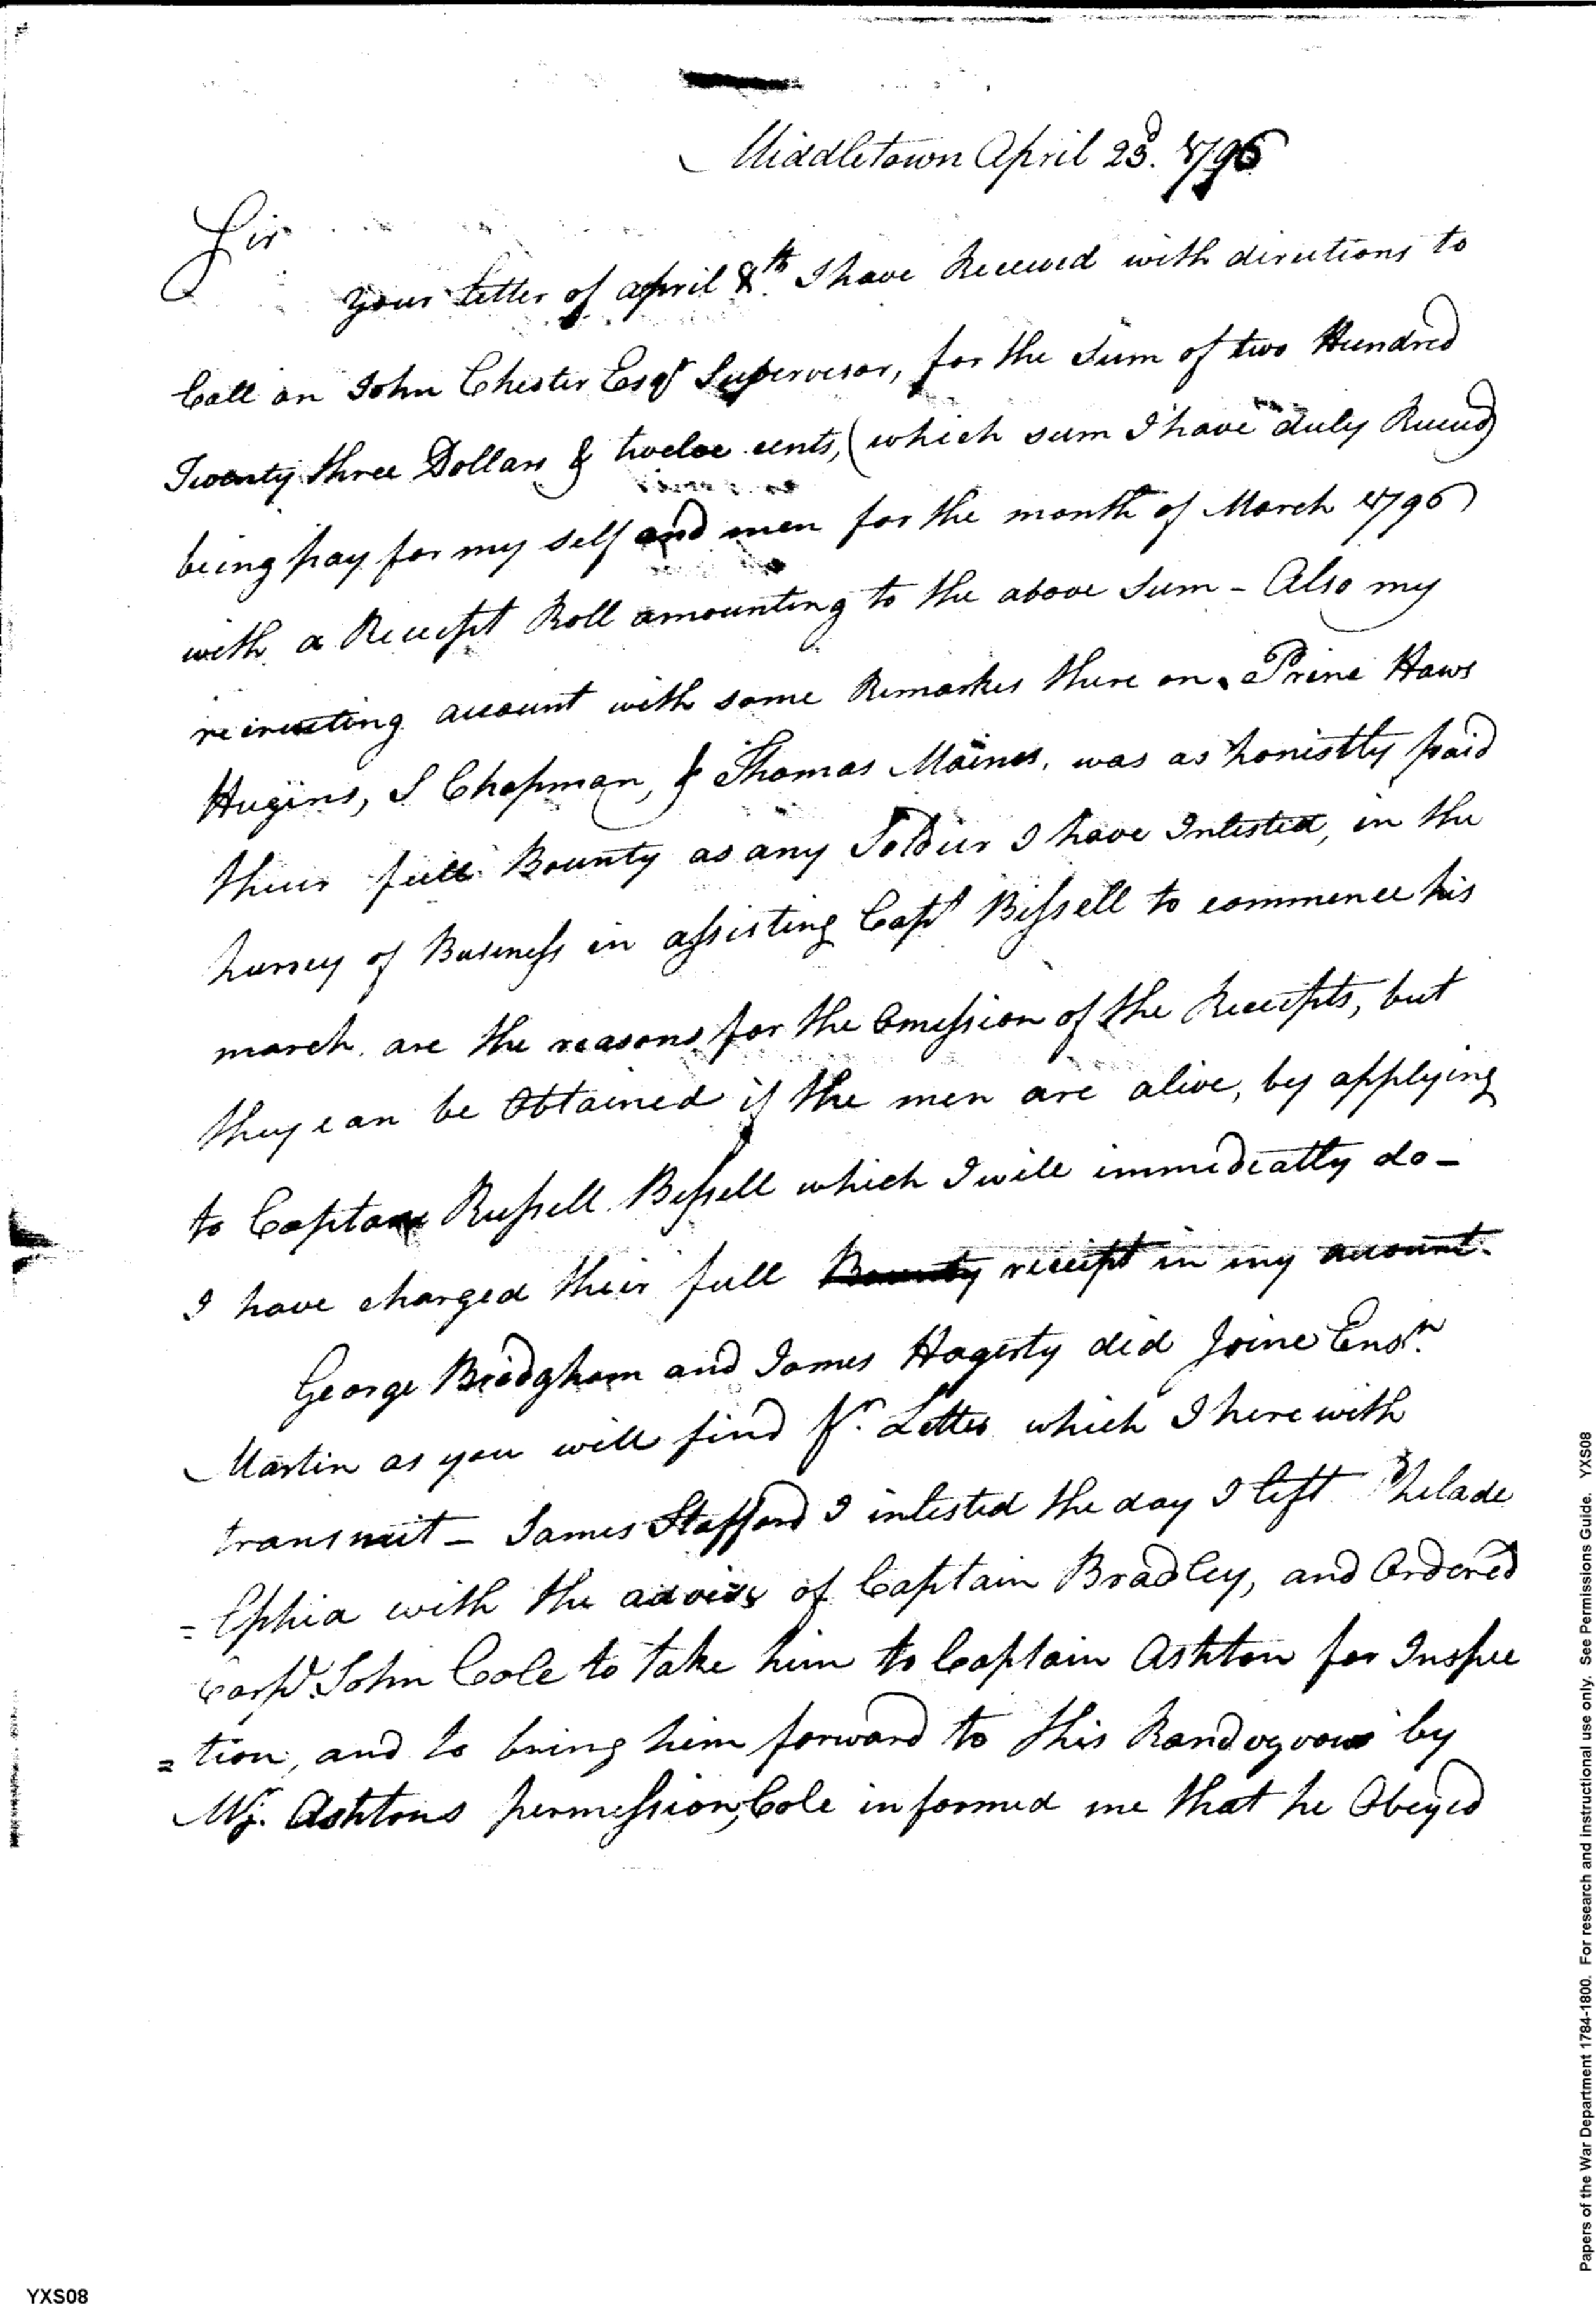 Middletown April 23d. 1796
Sir
your letter of april 8th. I have Received with directions to
Call on John Chester Esqr Supervisor, for the Sum of two Hundred
Twenty three Dollars & twelve cents, (which sum I have duly Receivd)
being pay for my self and men for the month of March 1796
with a Receipt Roll amounting to the above Sum - Also my
recruiting account with some Remarkes there on. Prine Haws
Hugins, S Chapman, & Thomas Maines, was as honistly paid
their full Bounty as any Soldier I have Inlested, in the
hurrey of Business in assisting Capt Bissell to commence his
march. are the reasons for the Omission of the Receipts, but
they can be Obtained if the men are alive, by applying
to Captane Russell Bissell which I will immediatly do -
I have charged their full Bounty receipt in my account.
George Bredgham and James Hagerty did Joine Ensn.
Martin as you will find Pr. Letter which I here with
transmit - James Stafford I inlested the day I left Philade
= lphia with the advice of Captain Bradley, and Ordered
Corpl. John Cole to take him to Captain Ashton for Inspec
= tion, and to bring him forward to this Randezvous by
Mj. Ashtons permession, Cole informed me that he Obeyed
YXS08
Papers of the War Department 1784-1800. For research and instructional use only. See Permissions Guide. YXS08